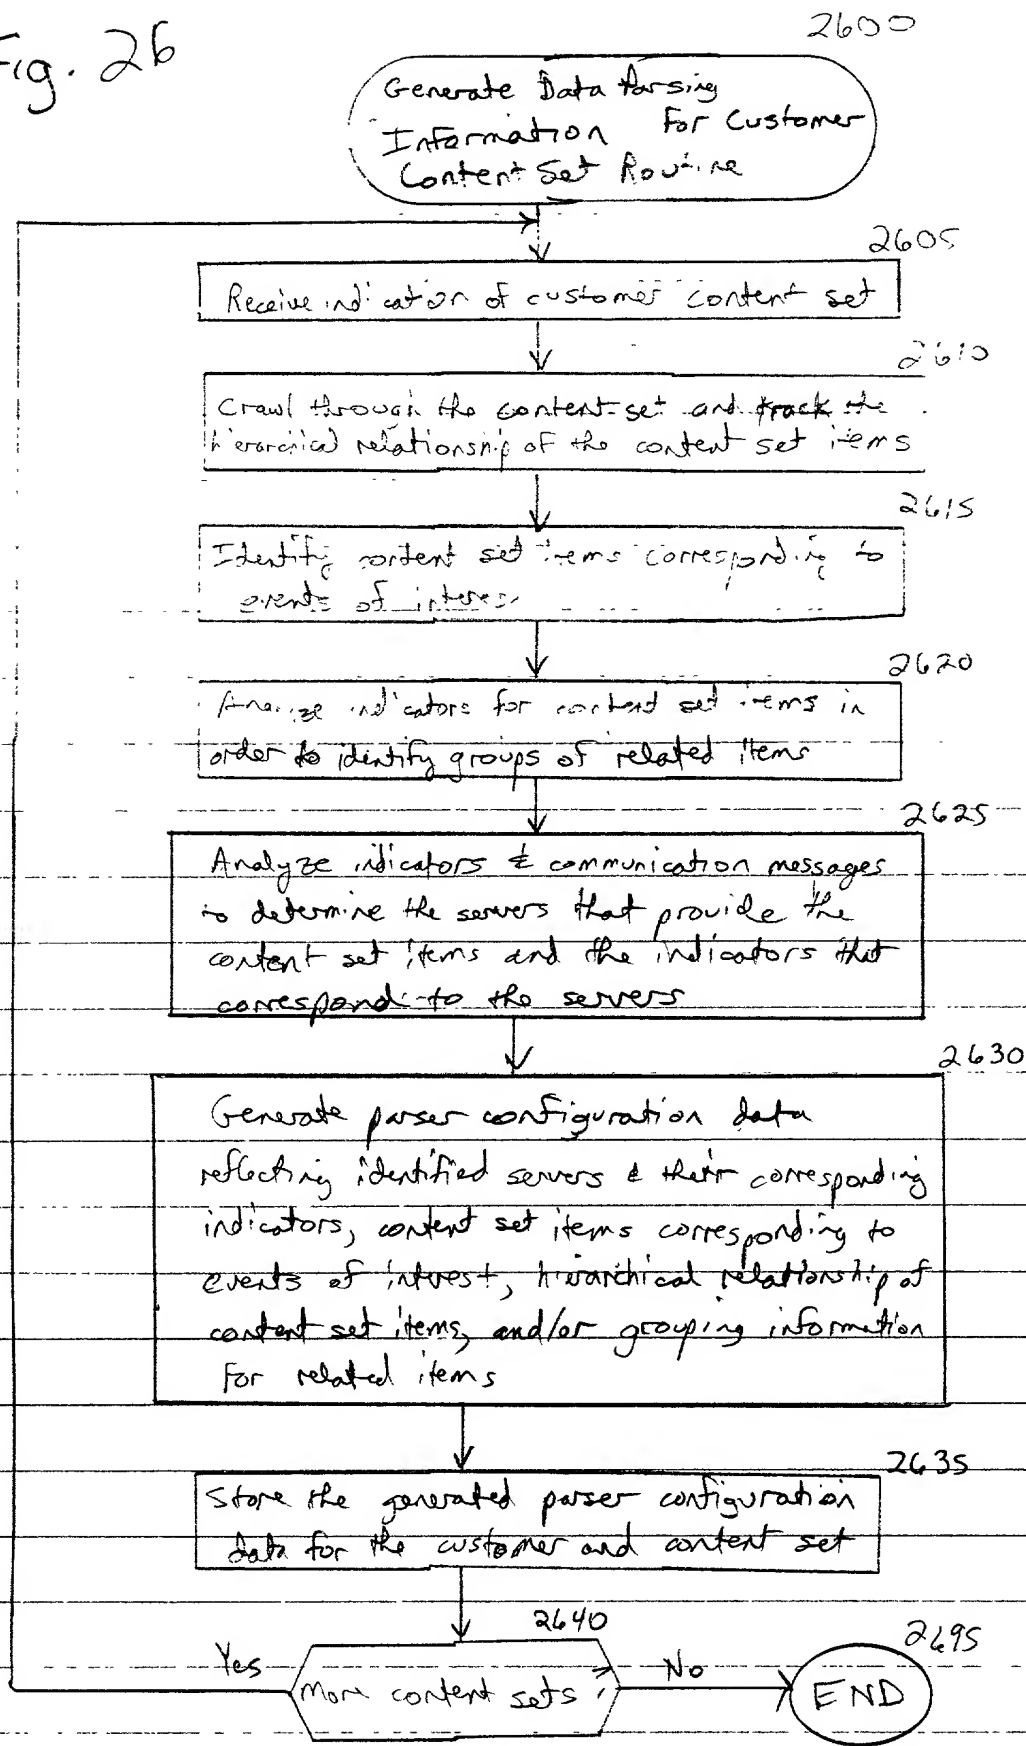 Fig. 26
2600
Generate Data Parsing
Information For Customer
Content Set Routine
2605
Receive indication of customer content set
2610
Crawl through the content set and track the
hierarchical relationship of the content set items
2615
Identify content set items corresponding to
events of interest
2620
Analyze indicators for content set items in
order to identify groups of related items
2625
Analyze indicators & communication messages
to determine the servers that provide the
content set items and the indicators that
correspond to the servers
2630
Generate parser configuration data
reflecting identified servers & their corresponding
indicators, content set items corresponding to
events of interest, hierarchical relationship of
content set items, and/or grouping information
for related items
2635
Store the generated parser configuration
data for the customer and content set
2640
Yes
More content sets ?
No
2695
END